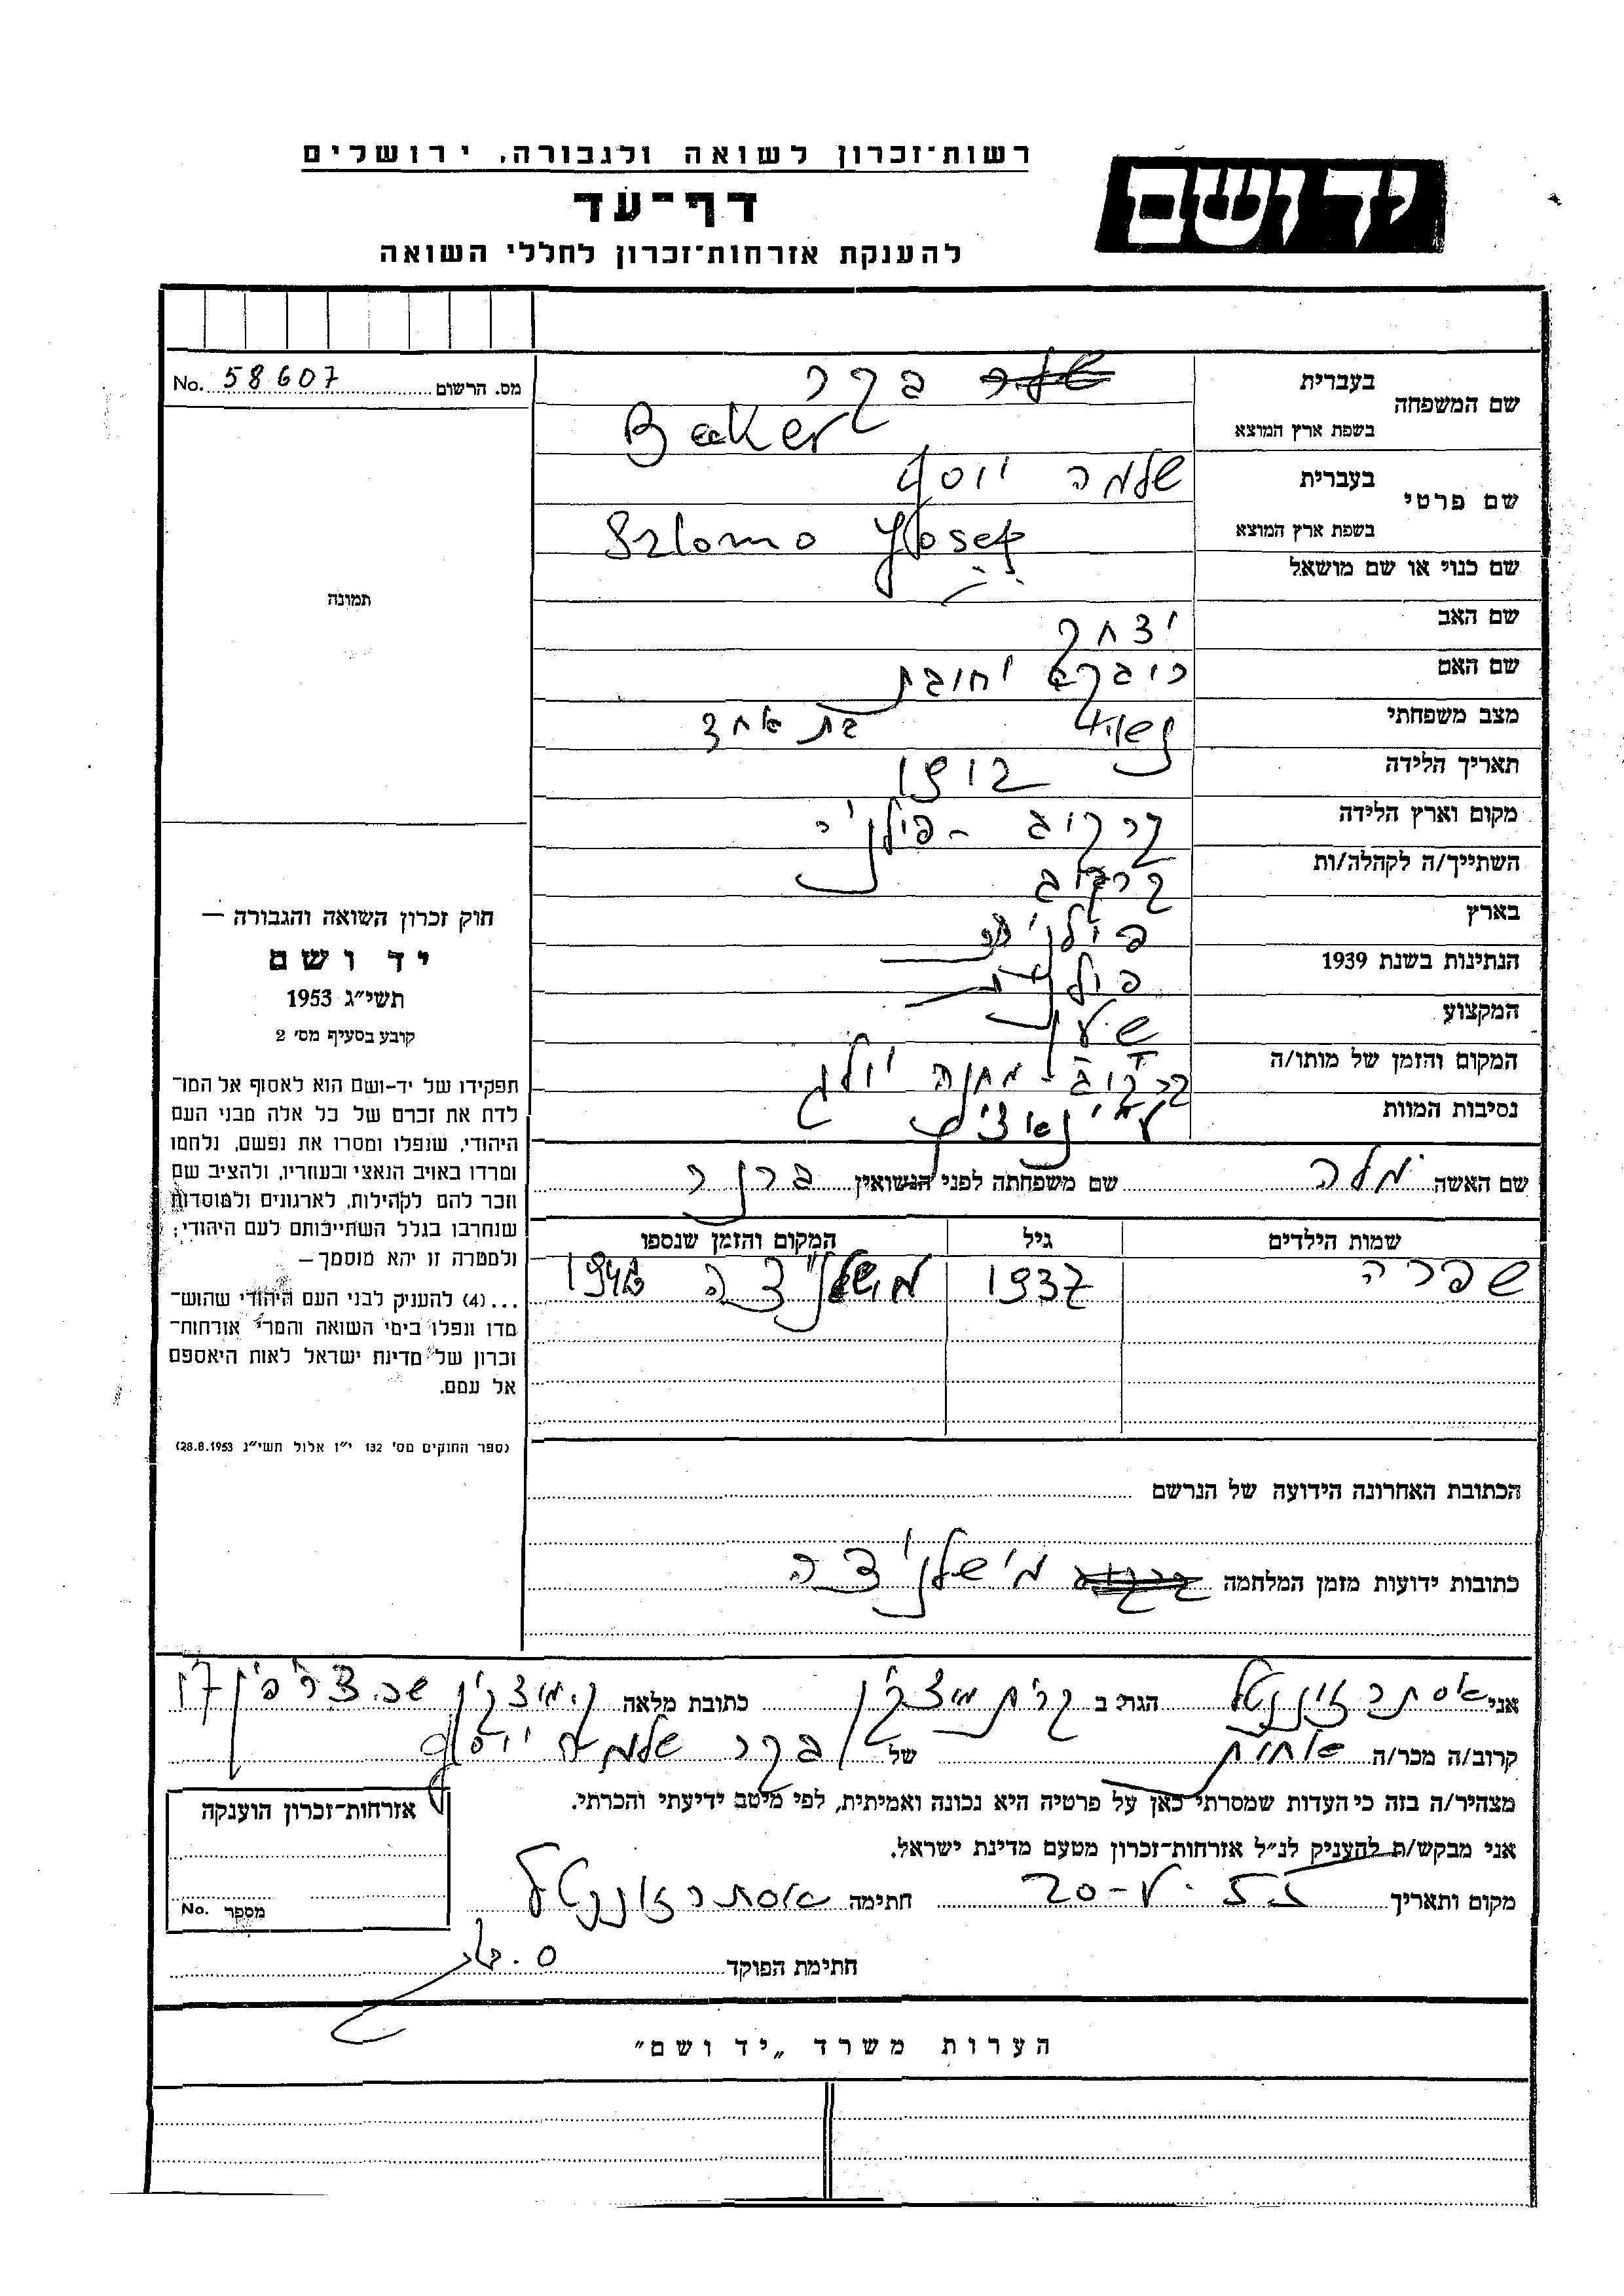 רשות־זכרון לשואה ולגבורה, ירושלים
יד ושם
דף־עד
להענקת אזרחות־זכרון לחללי השואה
מס. הרשום No. 58607
תמונה
חוק זכרון השואה והגבורה —
יד ושם
תשי״ג 1953
קובע בסעיף מס׳ 2
תפקידו של יד-ושם הוא לאסוף אל המו־
לדת את זכרם של כל אלה מבני העם
היהודי, שנפלו ומסרו את נפשם, נלחמו
ומרדו באויב הנאצי ובעוזריו, ולהציב שם
וזכר להם לקהילות, לארגונים ולמוסדות
שנחרבו בגלל השתייכותם לעם היהודי;
ולמטרה זו יהא מוסמך —
...(4) להעניק לבני העם היהודי שהוש־
מדו ונפלו בימי השואה והמרי אזרחות־
זכרון של מדינת ישראל לאות היאספם
אל עמם.
(ספר החוקים מס׳ 132 י״ז אלול תשי״ג 28.8.1953)
שם המשפחה בעברית בקר
בשפת ארץ המוצא Beker
שם פרטי בעברית שלמה יוסף
בשפת ארץ המוצא Szlomo Josef
שם כנוי או שם מושאל
שם האב יצחק
שם האם
מצב משפחתי נשוי בת אחד
תאריך הלידה 1912
מקום וארץ הלידה קרקוב - פולניה
השתייך/ה לקהלה/ות קרקוב
בארץ
הנתינות בשנת 1939
המקצוע שען
המקום והזמן של מותו/ה קרקוב מחנה יולג
נסיבות המוות
שם האשה מלה שם משפחתה לפני הנשואין ברנר
שמות הילדים גיל המקום והזמן שנספו
שפרה 1937
הכתובת האחרונה הידועה של הנרשם
כתובות ידועות מזמן המלחמה מישלניצה
אני אסתר זוננטל הגר/ה ב קרית מוצקין כתובת מלאה ק. מוצקין
קרוב/ה מכר/ה אחות של בקר שלמה יוסף
מצהיר/ה בזה כי העדות שמסרתי כאן על פרטיה היא נכונה ואמיתית, לפי מיטב ידיעתי והכרתי.
אני מבקש/ת להעניק לנ״ל אזרחות־זכרון מטעם מדינת ישראל.
מקום ותאריך חתימה אסתר זוננטל
חתימת הפוקד
אזרחות־זכרון הוענקה
מספר No.
הערות משרד „יד ושם״